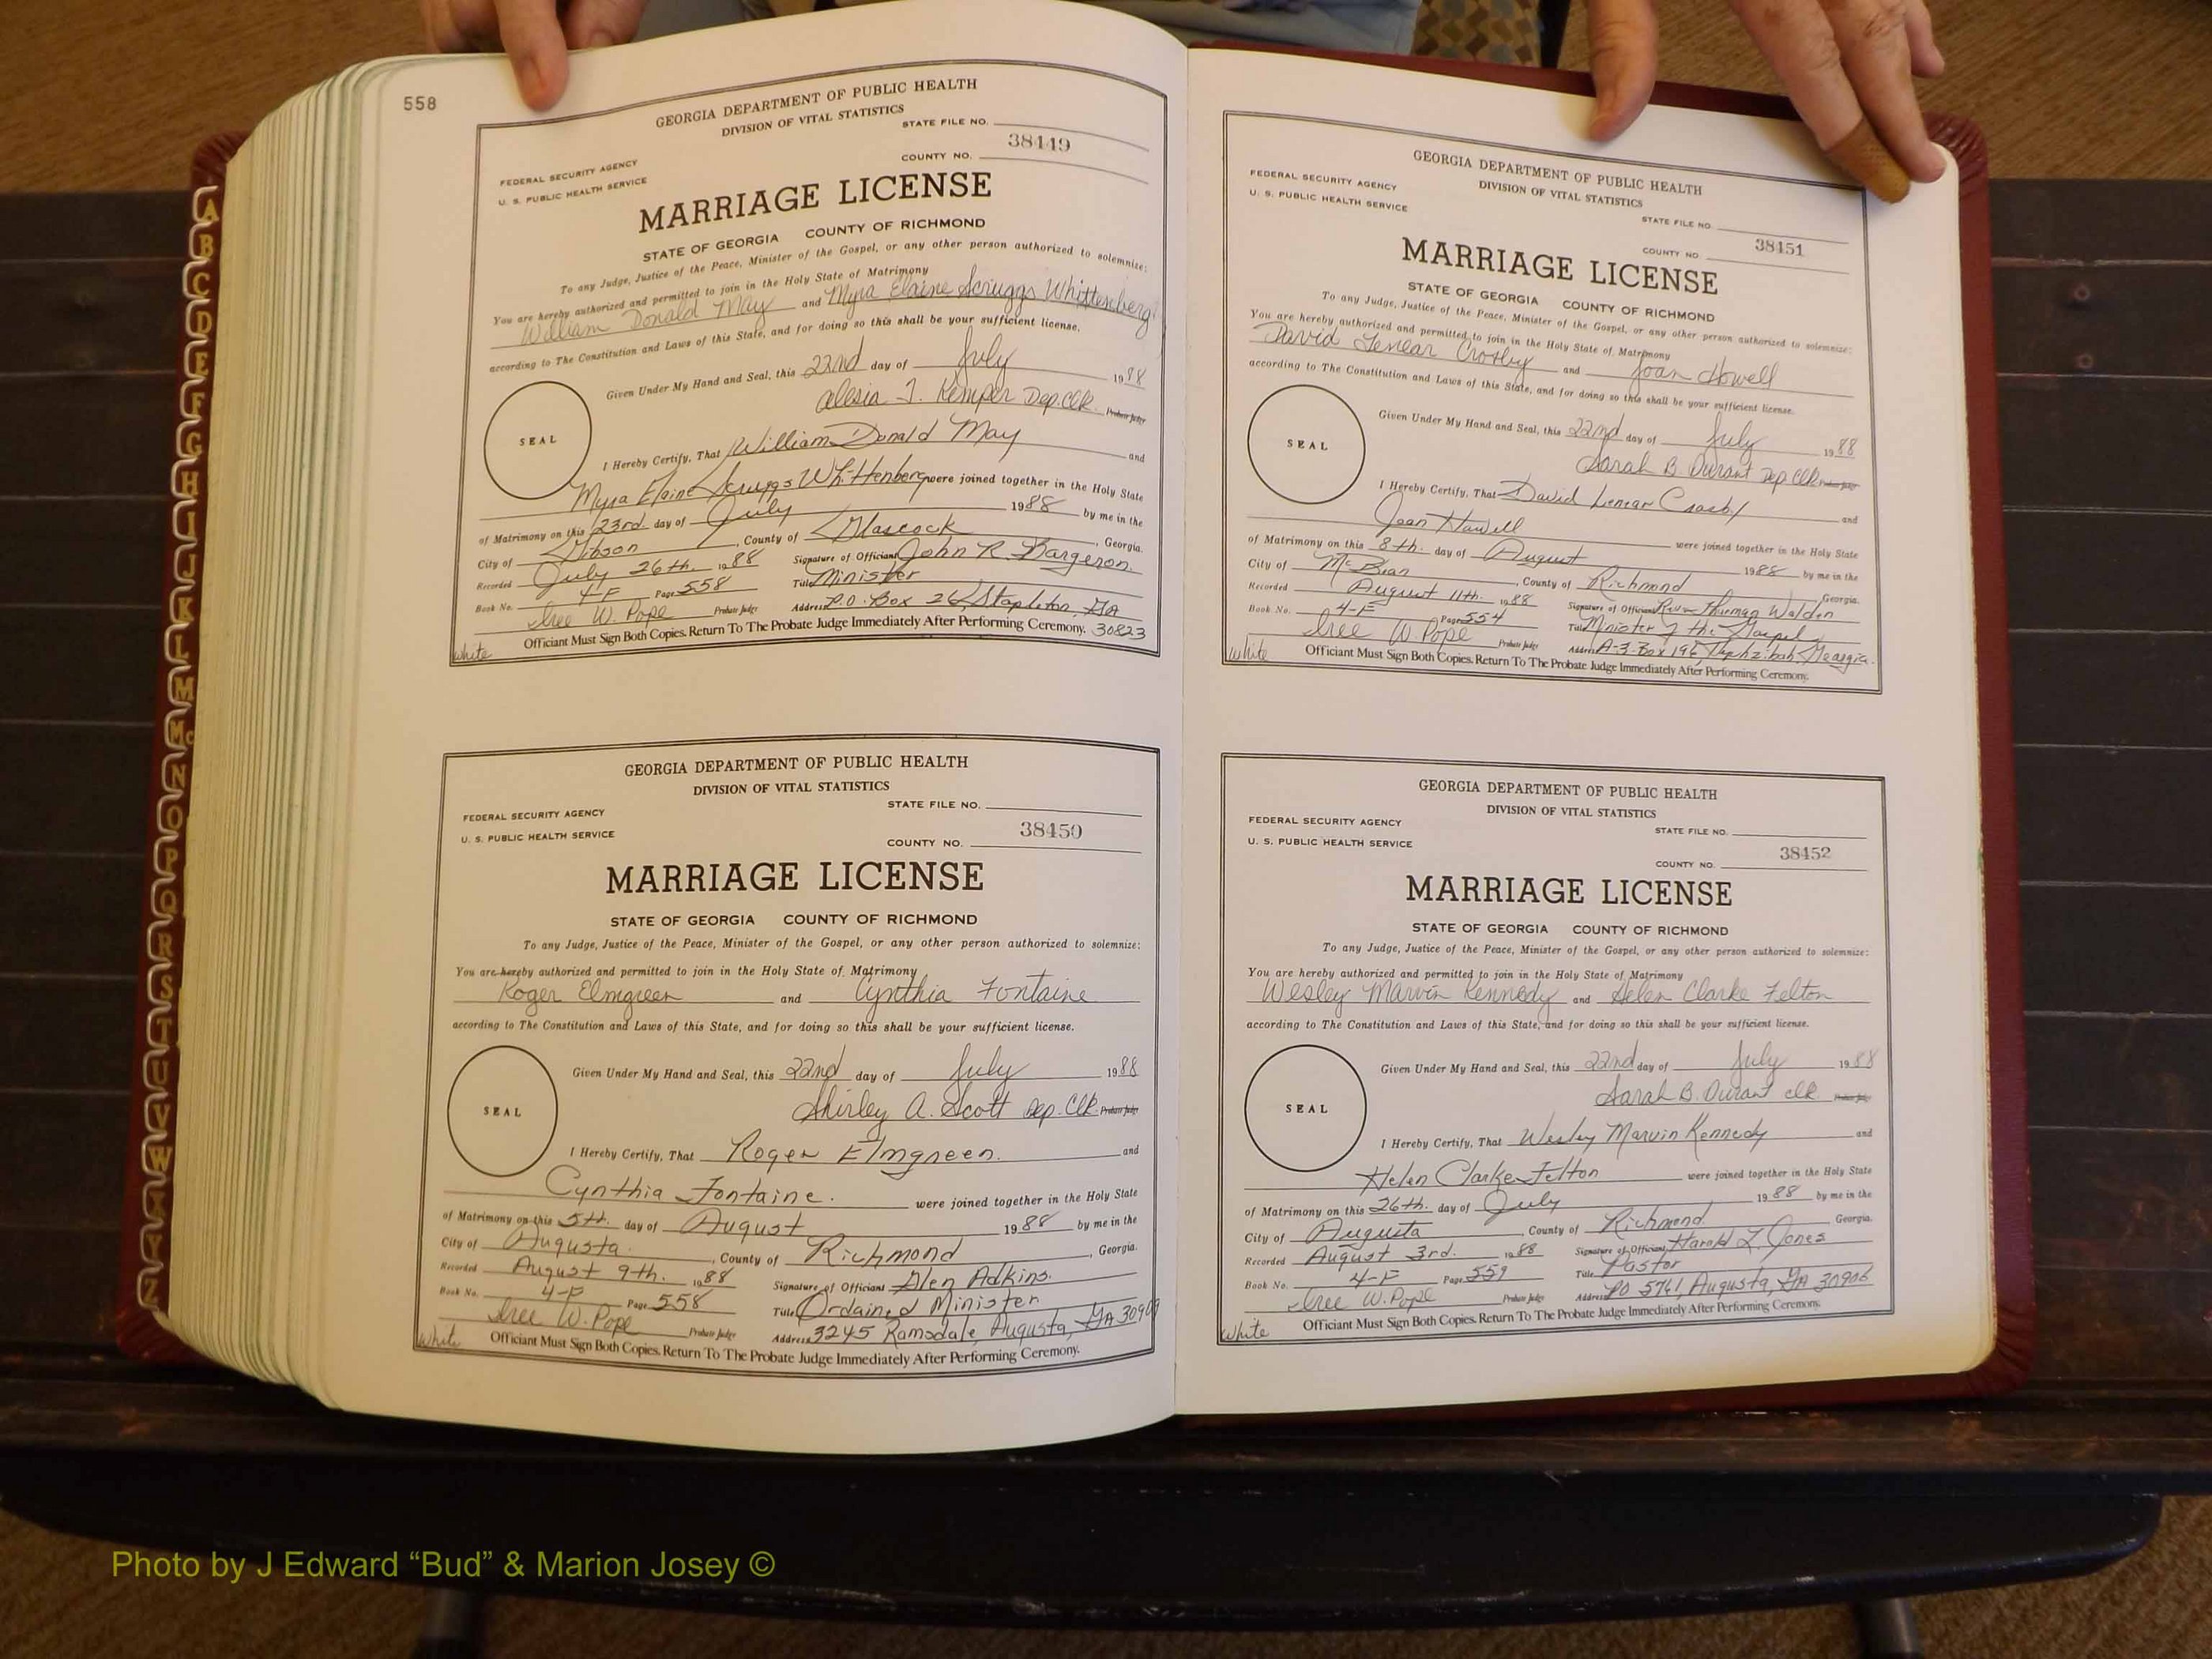 558
GEORGIA DEPARTMENT OF PUBLIC HEALTH
DIVISION OF VITAL STATISTICS
STATE FILE NO.
38449
COUNTY NO.
FEDERAL SECURITY AGENCY
U. S. PUBLIC HEALTH SERVICE
MARRIAGE LICENSE
STATE OF GEORGIA COUNTY OF RICHMOND
To any Judge, Justice of the Peace, Minister of the Gospel, or any other person authorized to solemnize:
You are hereby authorized and permitted to join in the Holy State of Matrimony
William Donald May and Myra Elaine Scruggs Whittenberg
according to The Constitution and Laws of this State, and for doing so this shall be your sufficient license.
Given Under My Hand and Seal, this 22nd day of July 1988
Alesia J. Kemper Dep. Clk. Probate Judge
SEAL
I Hereby Certify, That William Donald May and
Myra Elaine Scruggs Whittenberg were joined together in the Holy State
of Matrimony on this 23rd day of July 1988 by me in the
City of Gibson, County of Glascock, Georgia.
Recorded July 26th. 1988 Signature of Officiant John R. Bargeron
Book No. 4-F Page 558 Title Minister
Iree W. Pope Probate Judge Address P.O. Box 26, Stapleton GA
Officiant Must Sign Both Copies. Return To The Probate Judge Immediately After Performing Ceremony. 30823
White
GEORGIA DEPARTMENT OF PUBLIC HEALTH
DIVISION OF VITAL STATISTICS
STATE FILE NO.
FEDERAL SECURITY AGENCY
U. S. PUBLIC HEALTH SERVICE
38450
COUNTY NO.
MARRIAGE LICENSE
STATE OF GEORGIA COUNTY OF RICHMOND
To any Judge, Justice of the Peace, Minister of the Gospel, or any other person authorized to solemnize:
You are hereby authorized and permitted to join in the Holy State of Matrimony
Roger Elmgreen and Cynthia Fontaine
according to The Constitution and Laws of this State, and for doing so this shall be your sufficient license.
Given Under My Hand and Seal, this 22nd day of July 1988
Shirley A. Scott Dep. Clk. Probate Judge
SEAL
I Hereby Certify, That Roger Elmgreen. and
Cynthia Fontaine. were joined together in the Holy State
of Matrimony on this 5th. day of August 1988 by me in the
City of Augusta., County of Richmond, Georgia.
Recorded August 9th. 1988 Signature of Officiant Glen Adkins.
Book No. 4-F Page 558 Title Ordained Minister
Iree W. Pope Probate Judge Address 3245 Ramsdale, Augusta, GA 30909
Officiant Must Sign Both Copies. Return To The Probate Judge Immediately After Performing Ceremony.
White
GEORGIA DEPARTMENT OF PUBLIC HEALTH
DIVISION OF VITAL STATISTICS
FEDERAL SECURITY AGENCY
U. S. PUBLIC HEALTH SERVICE
STATE FILE NO.
38451
COUNTY NO.
MARRIAGE LICENSE
STATE OF GEORGIA COUNTY OF RICHMOND
To any Judge, Justice of the Peace, Minister of the Gospel, or any other person authorized to solemnize:
You are hereby authorized and permitted to join in the Holy State of Matrimony
David Lenear Crosby and Joan Howell
according to The Constitution and Laws of this State, and for doing so this shall be your sufficient license.
Given Under My Hand and Seal, this 22nd day of July 1988
Sarah B. Durant Dep Clk Probate Judge
SEAL
I Hereby Certify, That David Lenear Crosby and
Joan Howell were joined together in the Holy State
of Matrimony on this 8th. day of August 1988 by me in the
City of McBean, County of Richmond Georgia.
Recorded August 11th. 1988 Signature of Officiant Rev. Thurman Walden
Book No. 4-F Page 554 Title Minister of the Gospel
Iree W. Pope Probate Judge Address Box Hephzibah, Georgia.
Officiant Must Sign Both Copies. Return To The Probate Judge Immediately After Performing Ceremony.
White
GEORGIA DEPARTMENT OF PUBLIC HEALTH
DIVISION OF VITAL STATISTICS
FEDERAL SECURITY AGENCY
U. S. PUBLIC HEALTH SERVICE
STATE FILE NO.
38452
COUNTY NO.
MARRIAGE LICENSE
STATE OF GEORGIA COUNTY OF RICHMOND
To any Judge, Justice of the Peace, Minister of the Gospel, or any other person authorized to solemnize:
You are hereby authorized and permitted to join in the Holy State of Matrimony
Wesley Marvin Kennedy and Helen Clarke Felton
according to The Constitution and Laws of this State, and for doing so this shall be your sufficient license.
Given Under My Hand and Seal, this 22nd day of July 1988
Sarah B. Durant Clk. Probate Judge
SEAL
I Hereby Certify, That Wesley Marvin Kennedy and
Helen Clarke Felton were joined together in the Holy State
of Matrimony on this 26th. day of July 1988 by me in the
City of Augusta, County of Richmond. Georgia.
Recorded August 3rd. 1988 Signature of Officiant Harold L. Jones
Book No. 4-F Page 559 Title Pastor
Iree W. Pope Probate Judge Address PO 5761, Augusta, GA 30906
Officiant Must Sign Both Copies. Return To The Probate Judge Immediately After Performing Ceremony.
White
A
B
C
D
E
F
G
H
I
J
K
L
M
Mc
N
O
P
Q
R
S
T
U
V
W
X
Y
Z
Photo by J Edward “Bud” & Marion Josey ©